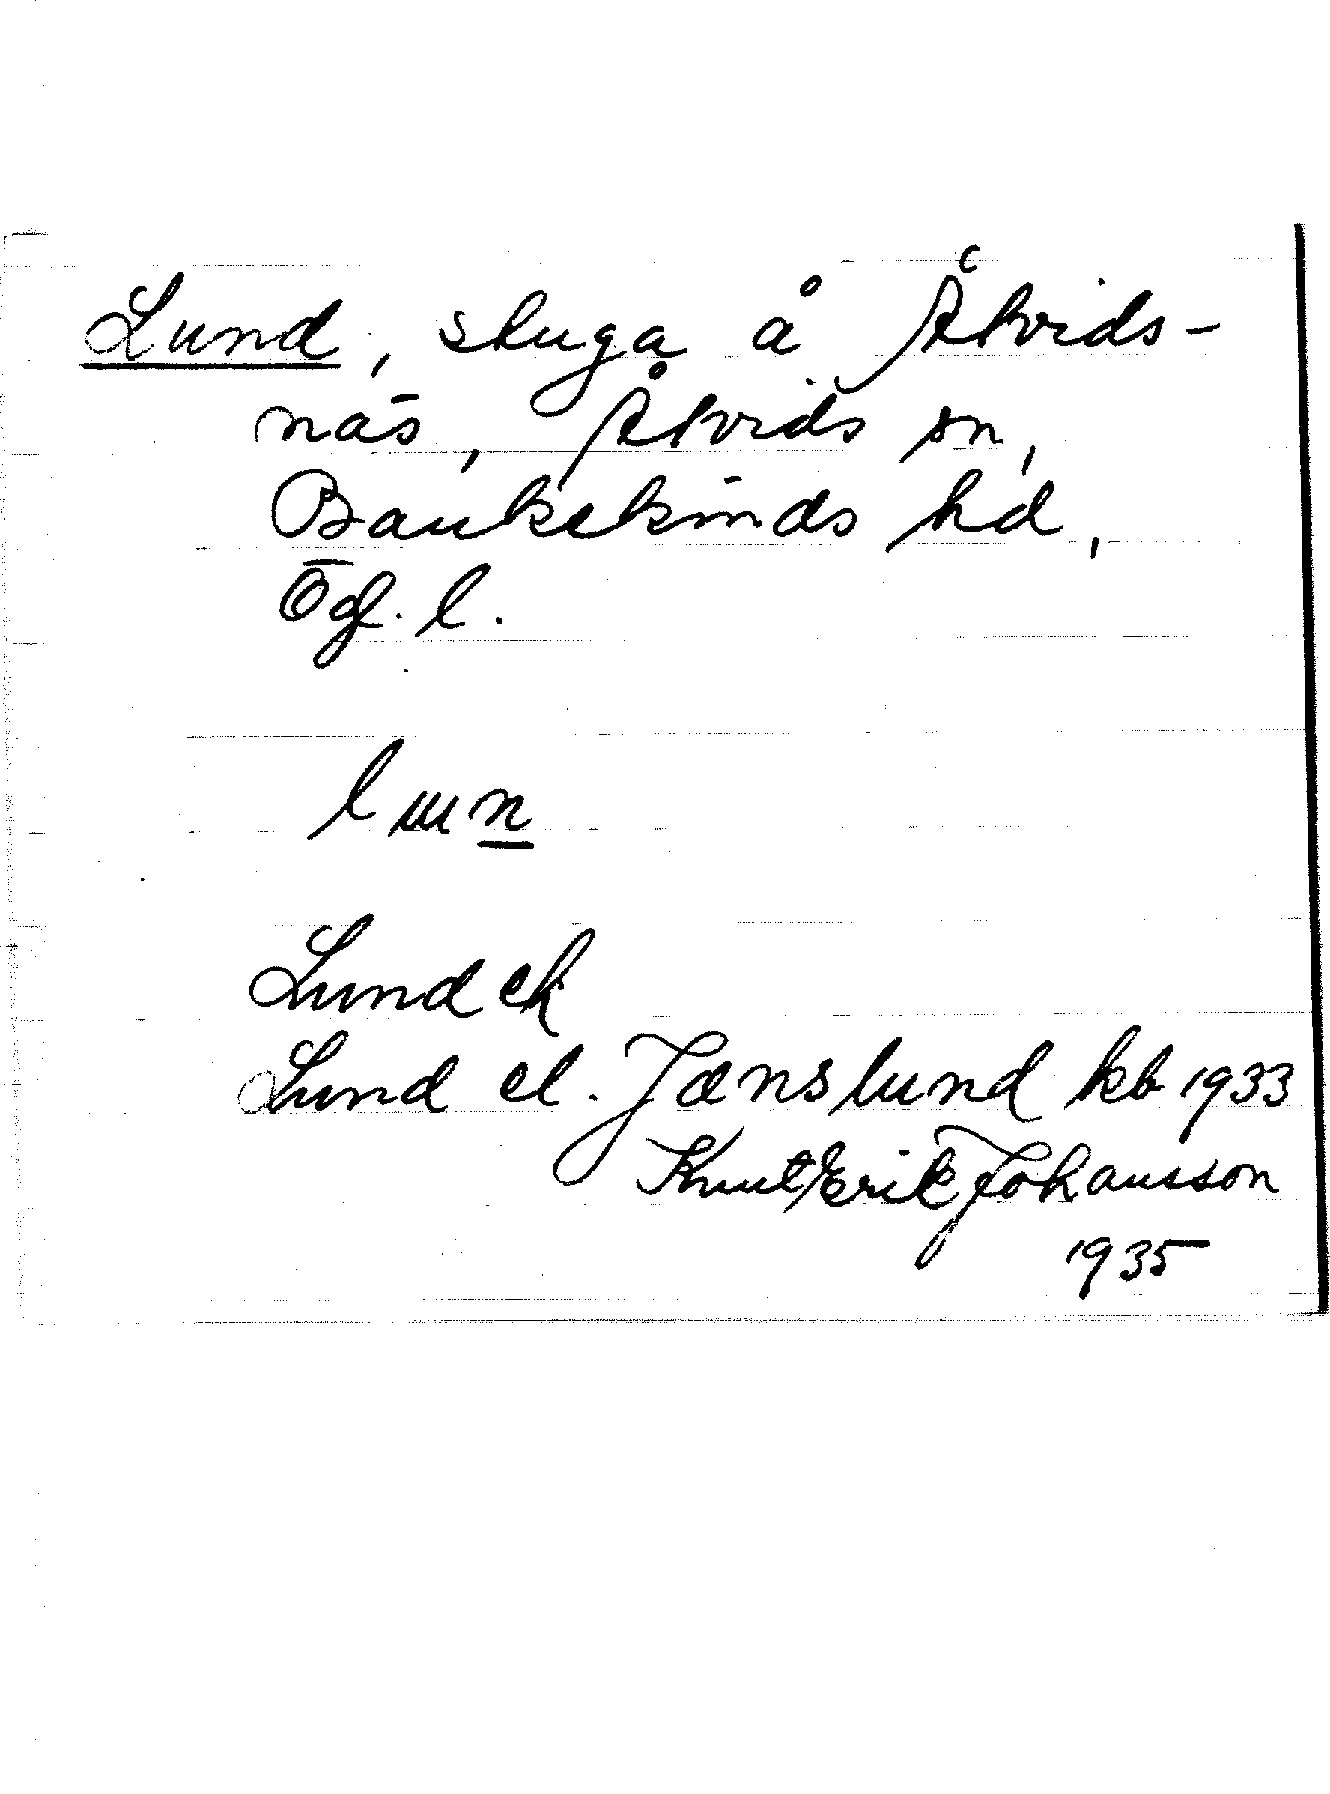 Lund, stuga å Åtvids-
näs, Åtvids sn,
Bankekinds hd,
Ög. l.
lɯn
Lund ek
Lund el. Jænslund kb 1933
Knut Erik Johansson
1935